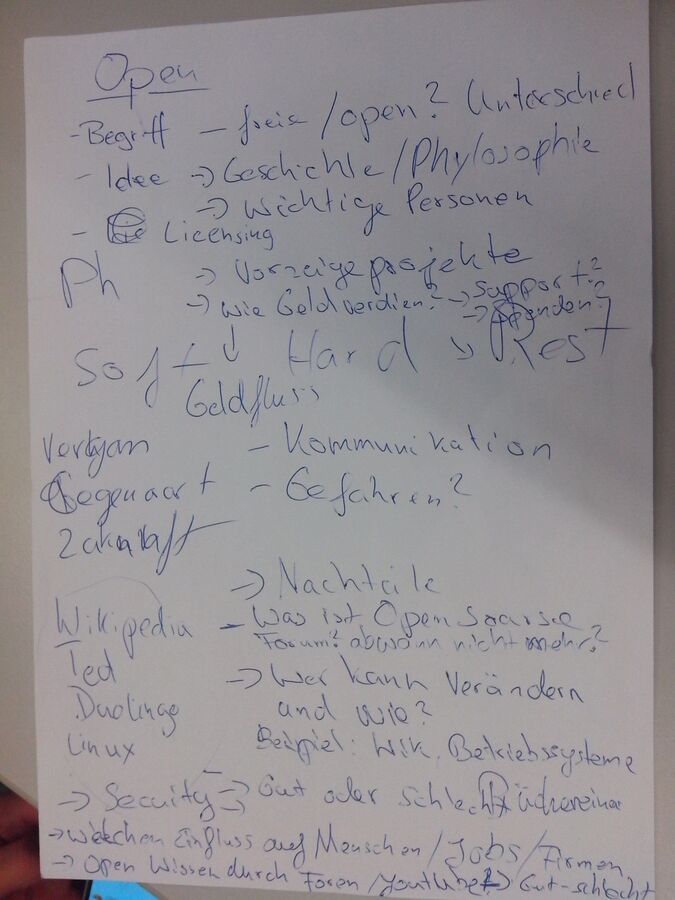 Open
- Begriff - freie / open? Unterschied
- Idee -> Geschichte / Phylosophie
-> wichtige Personen
- Licensing
Ph -> Vorzeigeprojekte
-> wie Geldverdien? -> Support?
-> Spenden?
Soft Hard Rest
Geldfluss
Vergan - Kommunikation
Gegenwart - Gefahren?
Zukunft
-> Nachteile
Wikipedia - Was ist Open
Forum? abwann nicht mehr?
Ted -> Wer kann Verändern
Duolingo und wie?
Linux Beispiel: Wik, Betriebssysteme
-> Security -> Gut oder schlecht
-> welchen Einfluss auf Menschen / Jobs / Firmen
-> Open Wissen durch Foren / youtube? -> Gut-schlecht